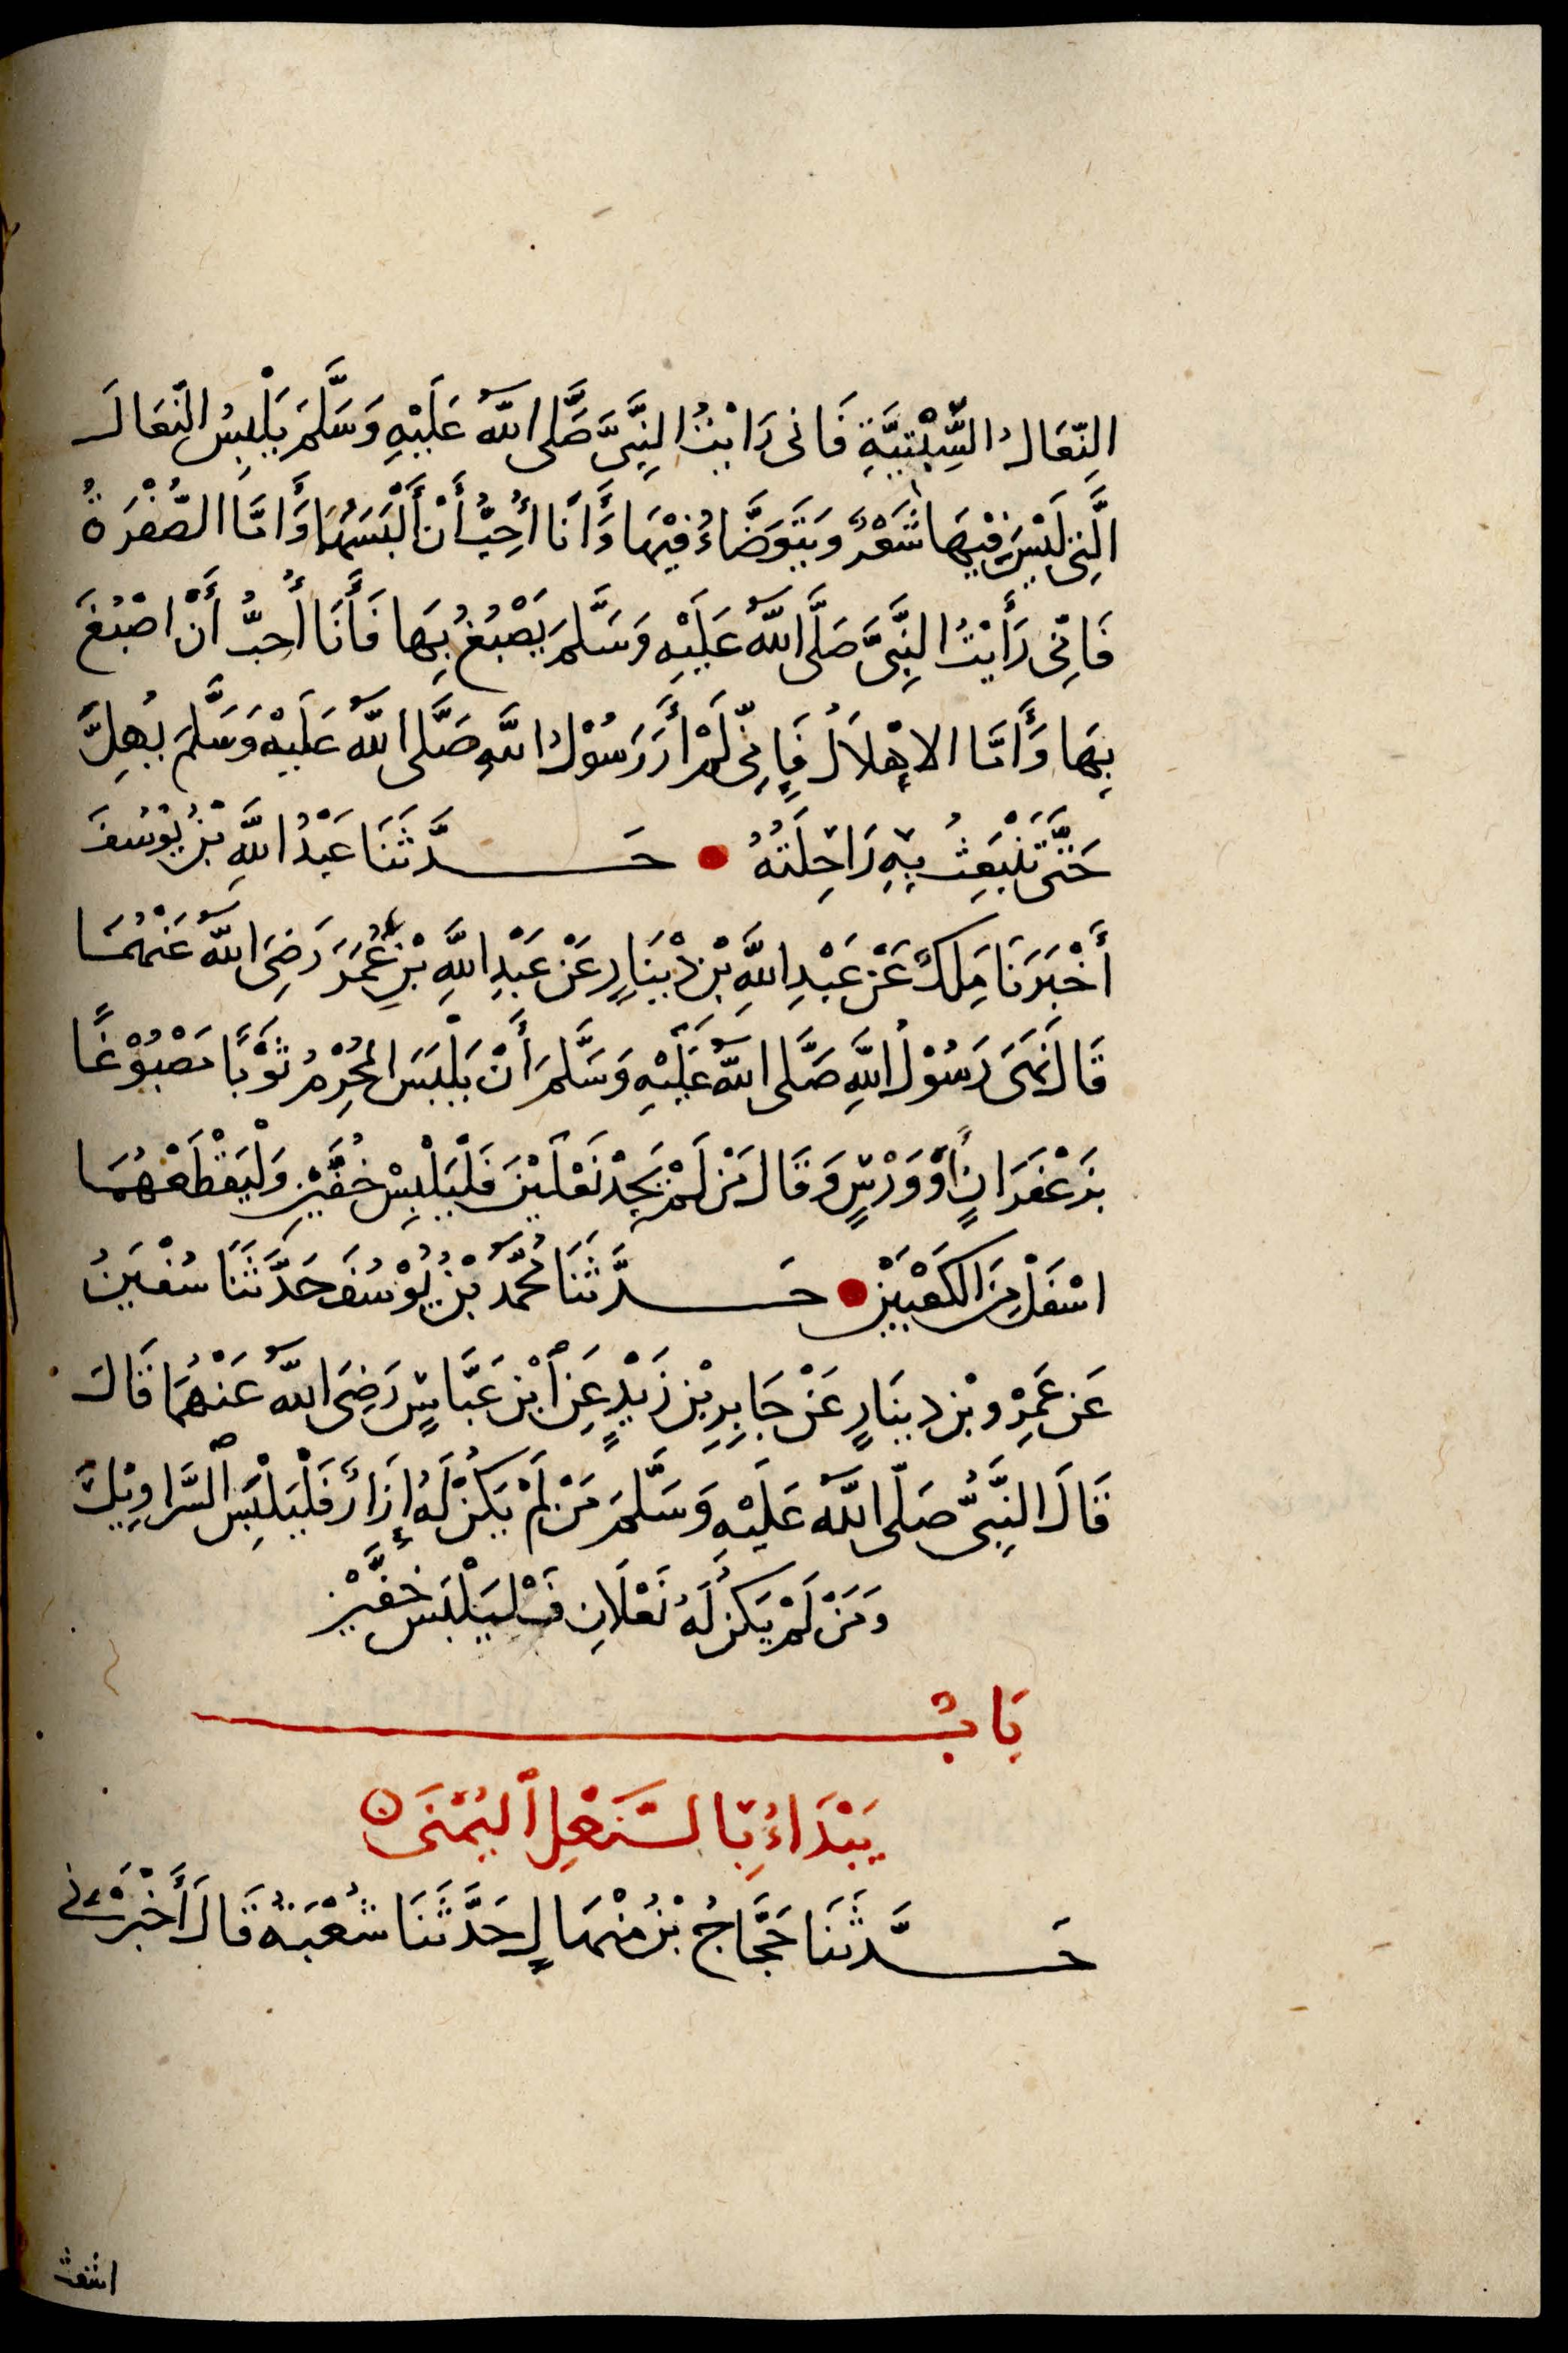 النِّعَالُ السِّبْتِيَّةِ فَانى رَايْتُ النَّبِىَّ صَلَّى اللهُ عَلَيْهِ وَسَلَّمَ يَلْبِسُ النِّعَالَ
الَّتِى لَيْسَ فِيْهَا شَعْرٌ وَيَتَوَضَّاءُ فِيْهَا وَأَنَا أُحِبُّ أَنْ أَلْبَسَهَا وَأَمَّا الصُّفْرَةُ
فَانِّى رَأَيْتُ النَّبِىَّ صَلَّى اللهُ عَلَيْهِ وَسَلَّمَ يَصْبُغُ بِهَا فَأَنَا أُحِبُّ أَنْ اصْبُغَ
بِهَا وَأَمَّا الاِهْلاَلُ فَإِنِّى لَمْ أَرَ رَسُوْلَ اللهِ صَلَّى اللهُ عَلَيْهِ وَسَلَّمَ يُهِلُّ
حَتَّى تَنْبَعِثُ بِهِ رَاحِلَتُهُ حَدَّثَنَا عَبْدُ اللهِ بْنُ يُوْسُفَ
أَخْبَرَنَا مَلِكٌ عَنْ عَبْدِ اللهِ بْنِ دِيْنَارٍ عَنْ عَبْدِ اللهِ بْنِ عُمَرَ رَضِىَ اللهُ عَنْهُمَا
قَالَ نَهَى رَسُوْلُ اللهِ صَلَّى اللهُ عَلَيْهِ وَسَلَّمَ أَنْ يَلْبَسَ الْمُحْرِمُ ثَوْبًا مَصْبُوْغًا
بِزَعْفَرَانٍ أَوْ وَرْسٍ وَقَالَ مَنْ لَمْ يَجِدْ نَعْلَيْنِ فَلْيَلْبِسْ خُفَّيْنِ وَلْيَقْطَعْهُمَا
اسْفَلَ مِنَ الْكَعْبَيْنِ حَدَّثَنَا مُحَمَّدُ بْنُ يُوْسُفَ حَدَّثَنَا سُفْيَنُ
عَنْ عَمْرِو بْنِ دِينَارٍ عَنْ جَابِرِ بْنِ زَيْدٍ عَنِ ٱبْنِ عَبَّاسٍ رَضِىَ اللهُ عَنْهُمَا قَالَ
قَالَ النَّبِىُّ صَلَّى اللهُ عَلَيْهِ وَسَلَّمَ مَنْ لَمْ يَكُنْ لَهُ إِزَارٌ فَلْيَلْبَسِ ٱلسَّرَاوِيْلَ
وَمَنْ لَمْ يَكُنْ لَهُ نَعْلَانِ فَلْيَلْبَسْ خُفَّيْنِ
بَابُ
يَبْدَاءُ بِالنَّعْلِ ٱلْيُمْنَى
حَدَّثَنَا حَجَّاجُ بْنُ مِنْهَالٍ حَدَّثَنَا شُعْبَةُ قَالَ أَخْبَرَنِى
اشعث